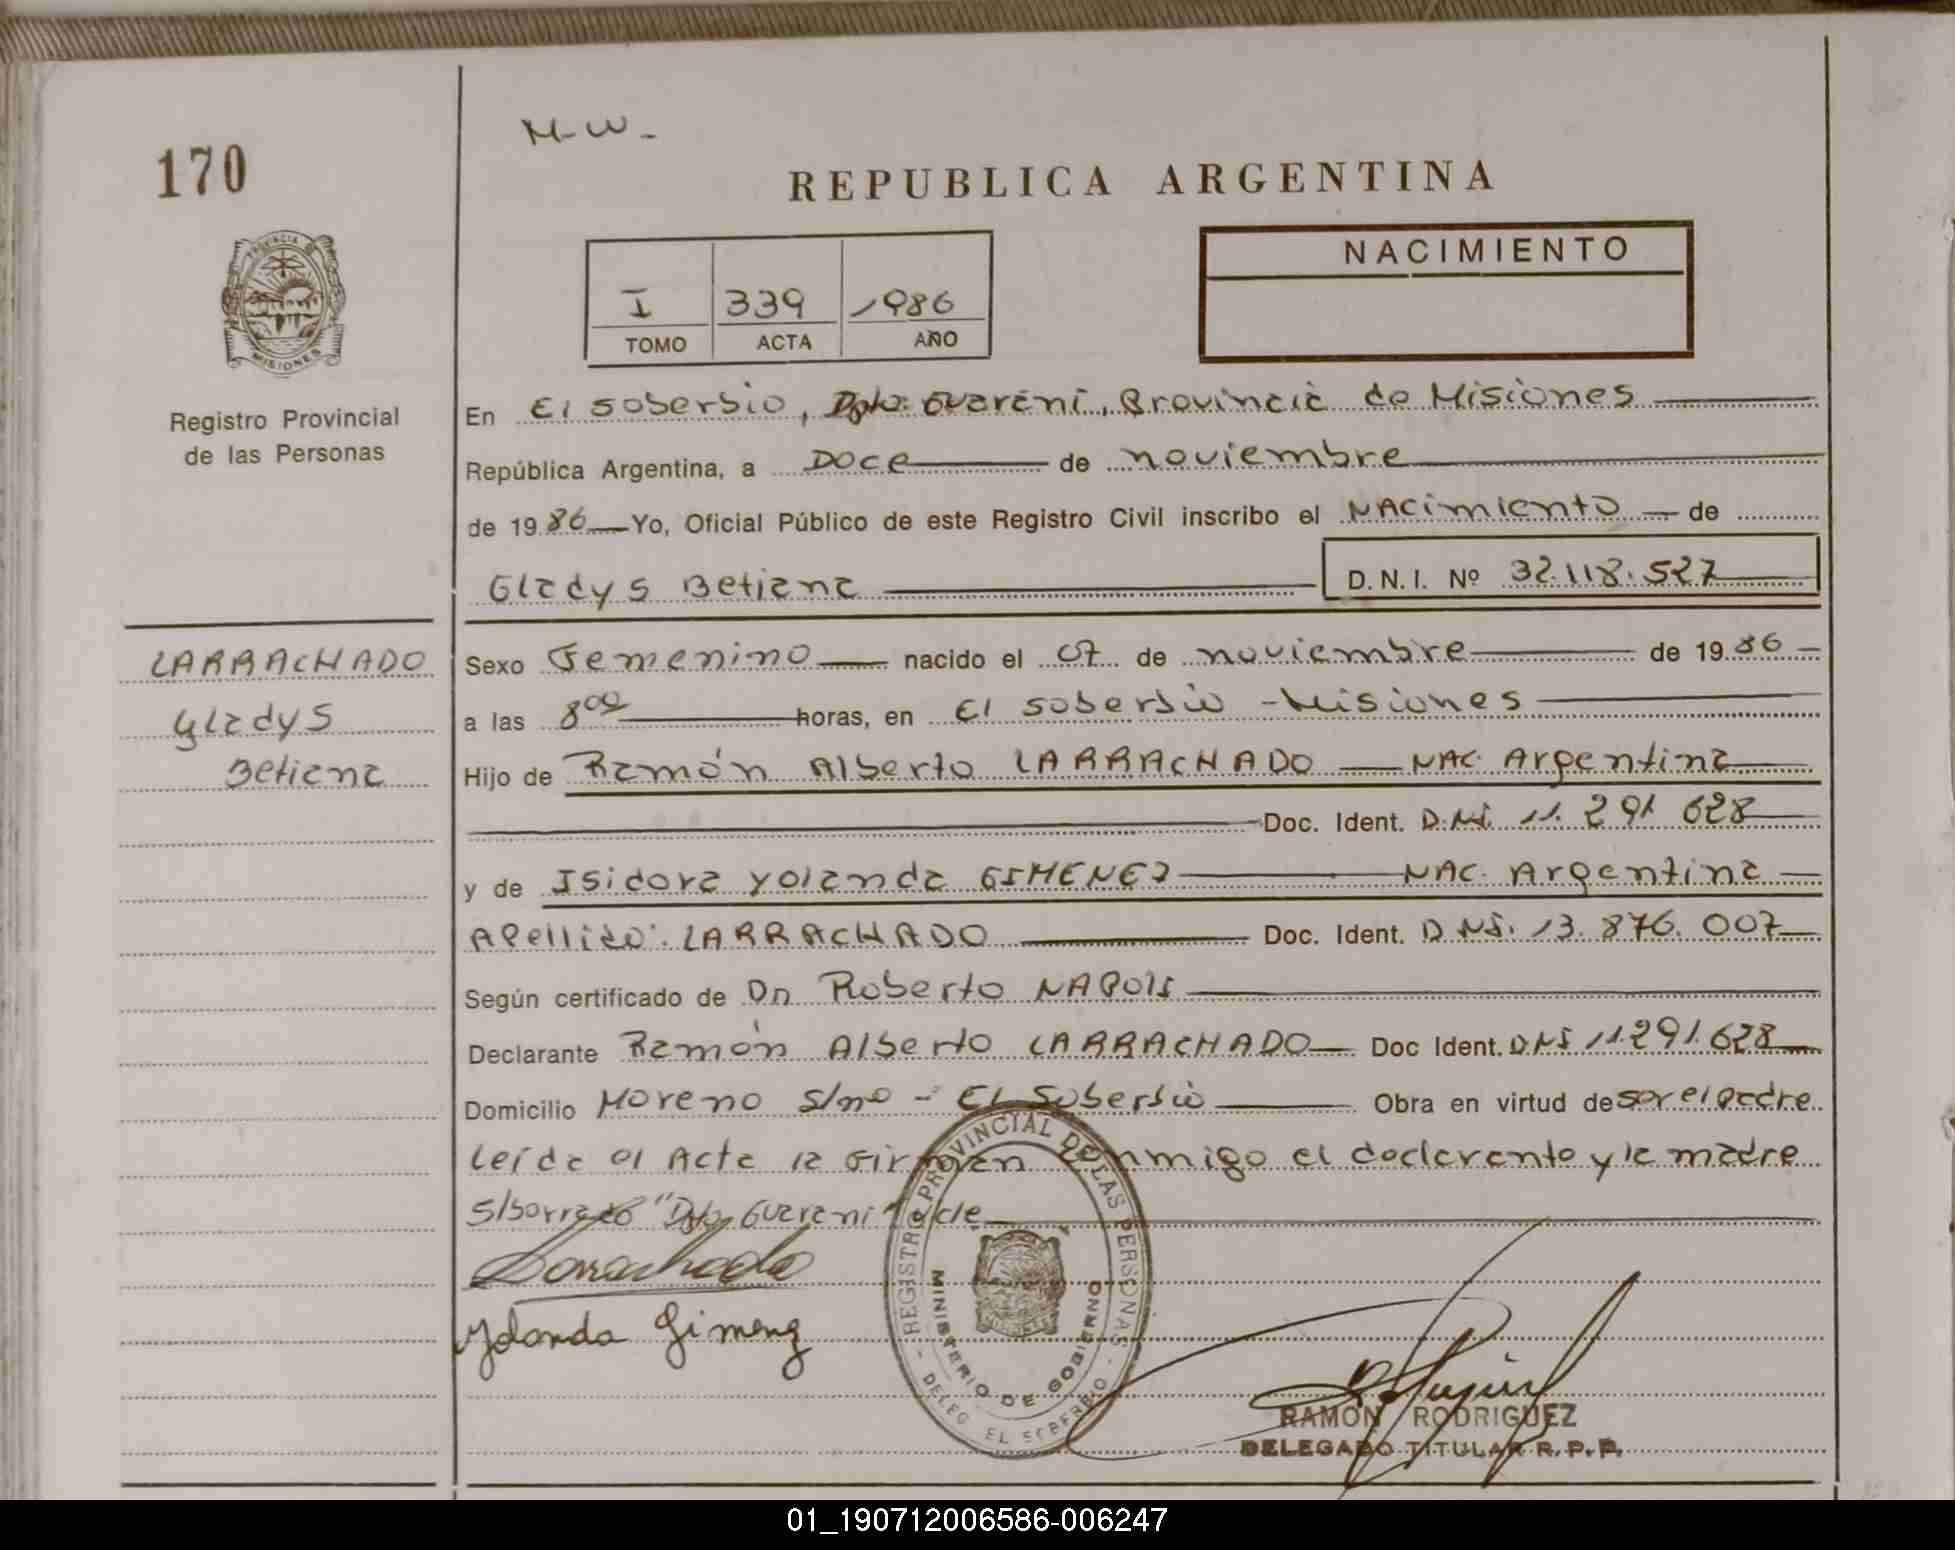 M-W-
170
REPUBLICA ARGENTINA
NACIMIENTO
I 339 1986
TOMO ACTA AÑO
PROVINCIA DE MISIONES
Registro Provincial
de las Personas
En El Soberbio, Dpto. Guaraní, Provincia de Misiones
República Argentina, a Doce de noviembre
de 1986 Yo, Oficial Público de este Registro Civil inscribo el Nacimiento de
Gladys Betiana D.N.I. Nº 32.118.527
LARRACHADO
Gladys
Betiana
Sexo Femenino nacido el 07 de noviembre de 1986
a las 8 00 horas, en El Soberbio - Misiones
Hijo de Ramón Alberto LARRACHADO NAC. Argentina
Doc. Ident. D.N.I. 11.291 628
y de Isidora Yolanda GIMENEZ NAC. Argentina
Apellido: LARRACHADO Doc. Ident. D.N.I. 13.876.007
Según certificado de Dn Roberto NAPOLI
Declarante Ramón Alberto LARRACHADO Doc Ident. DNI 11.291.628
Domicilio Moreno s/nº - El Soberbio Obra en virtud de ser el padre
Leída el Acta la firman conmigo el declarante y la madre
S/borrado "Dpto Guaraní" vale
Larrachado
Yolanda Gimenez
REGISTRO PROVINCIAL DE LAS PERSONAS
MINISTERIO DE GOBIERNO
DELEG. EL SOBERBIO
RAMON RODRIGUEZ
DELEGADO TITULAR R.P.P.
01_190712006586-006247